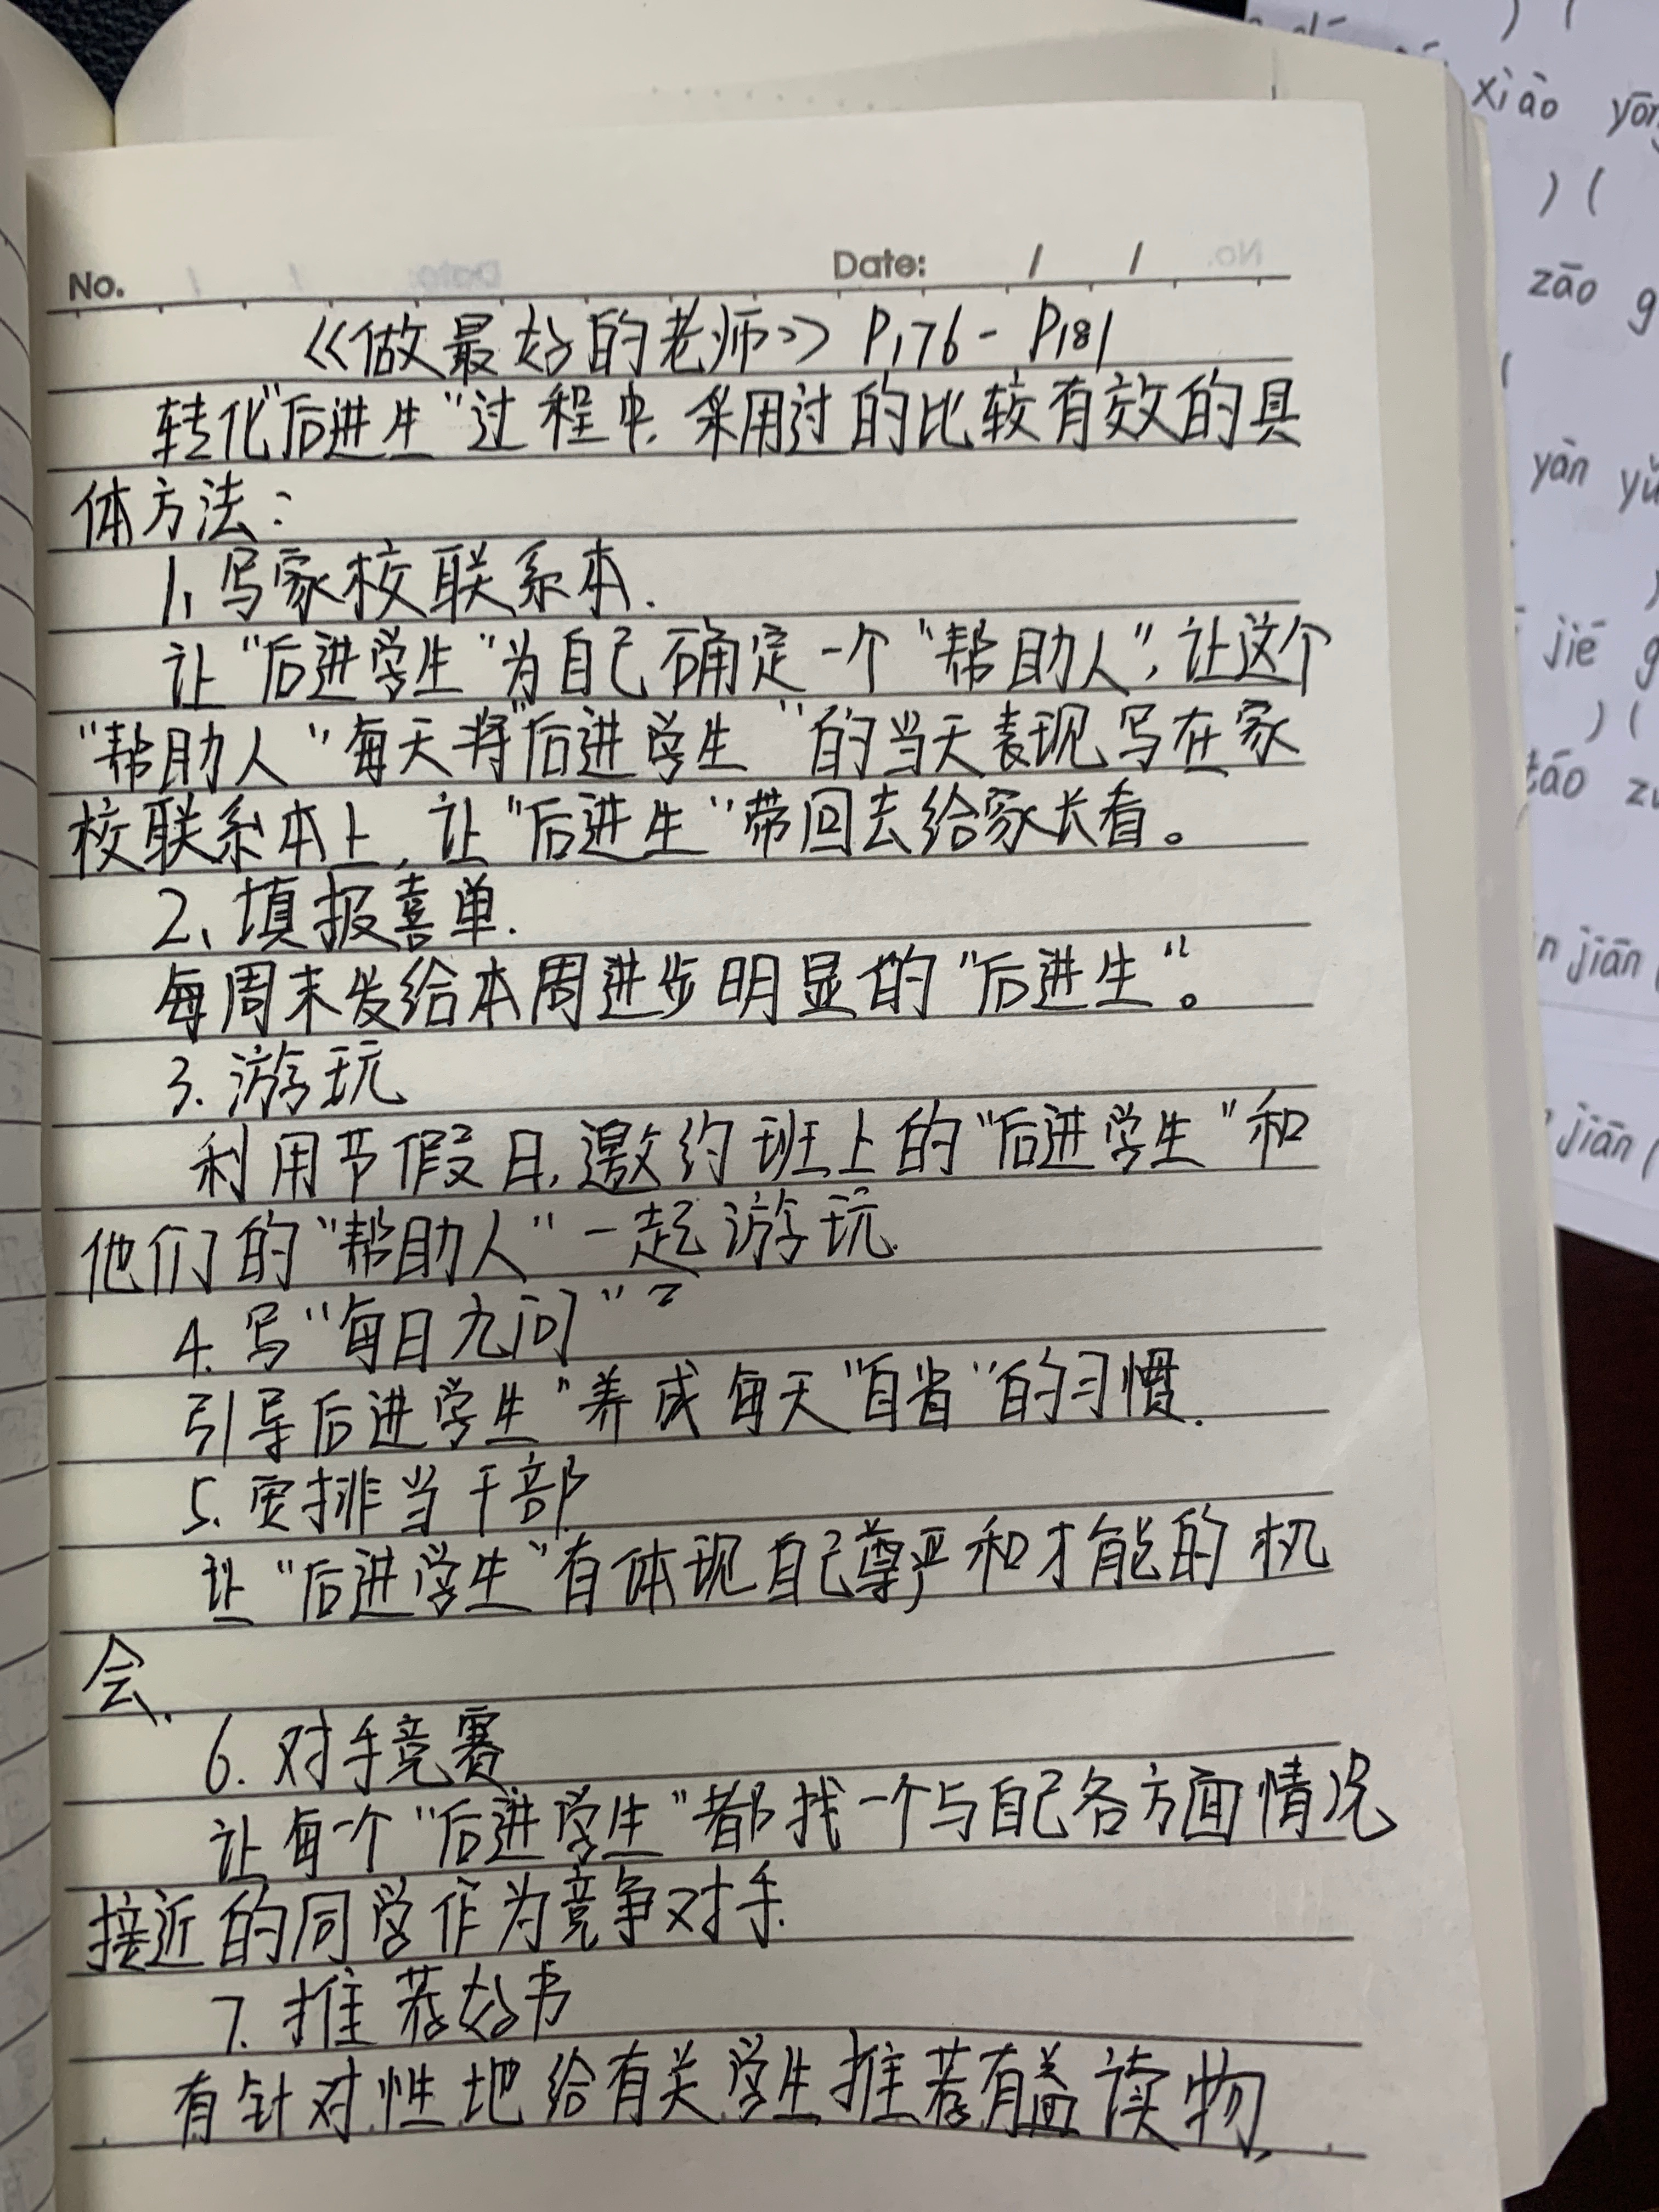 No.
Date: / /
《做最好的老师》P176-P181
转化"后进生"过程中,采用过的比较有效的具
体方法:
1、写家校联系本.
让"后进学生"为自己确定一个"帮助人",让这个
"帮助人"每天将"后进学生"的当天表现写在家
校联系本上,让"后进生"带回去给家长看。
2、填报喜单.
每周末发给本周进步明显的"后进生"。
3.游玩
利用节假日,邀约班上的"后进学生"和
他们的"帮助人"一起游玩.
4.写"每日九问"
引导后进学生"养成每天"自省"的习惯.
5.安排当干部
让"后进学生"有体现自己尊严和才能的机
会.
6.对手竞赛
让每一个"后进学生"都找一个与自己各方面情况
接近的同学作为竞争对手.
7.推荐好书
有针对性地给有关学生推荐有益读物.
xiào
zāo
yán
jié
táo
jiān
jiān